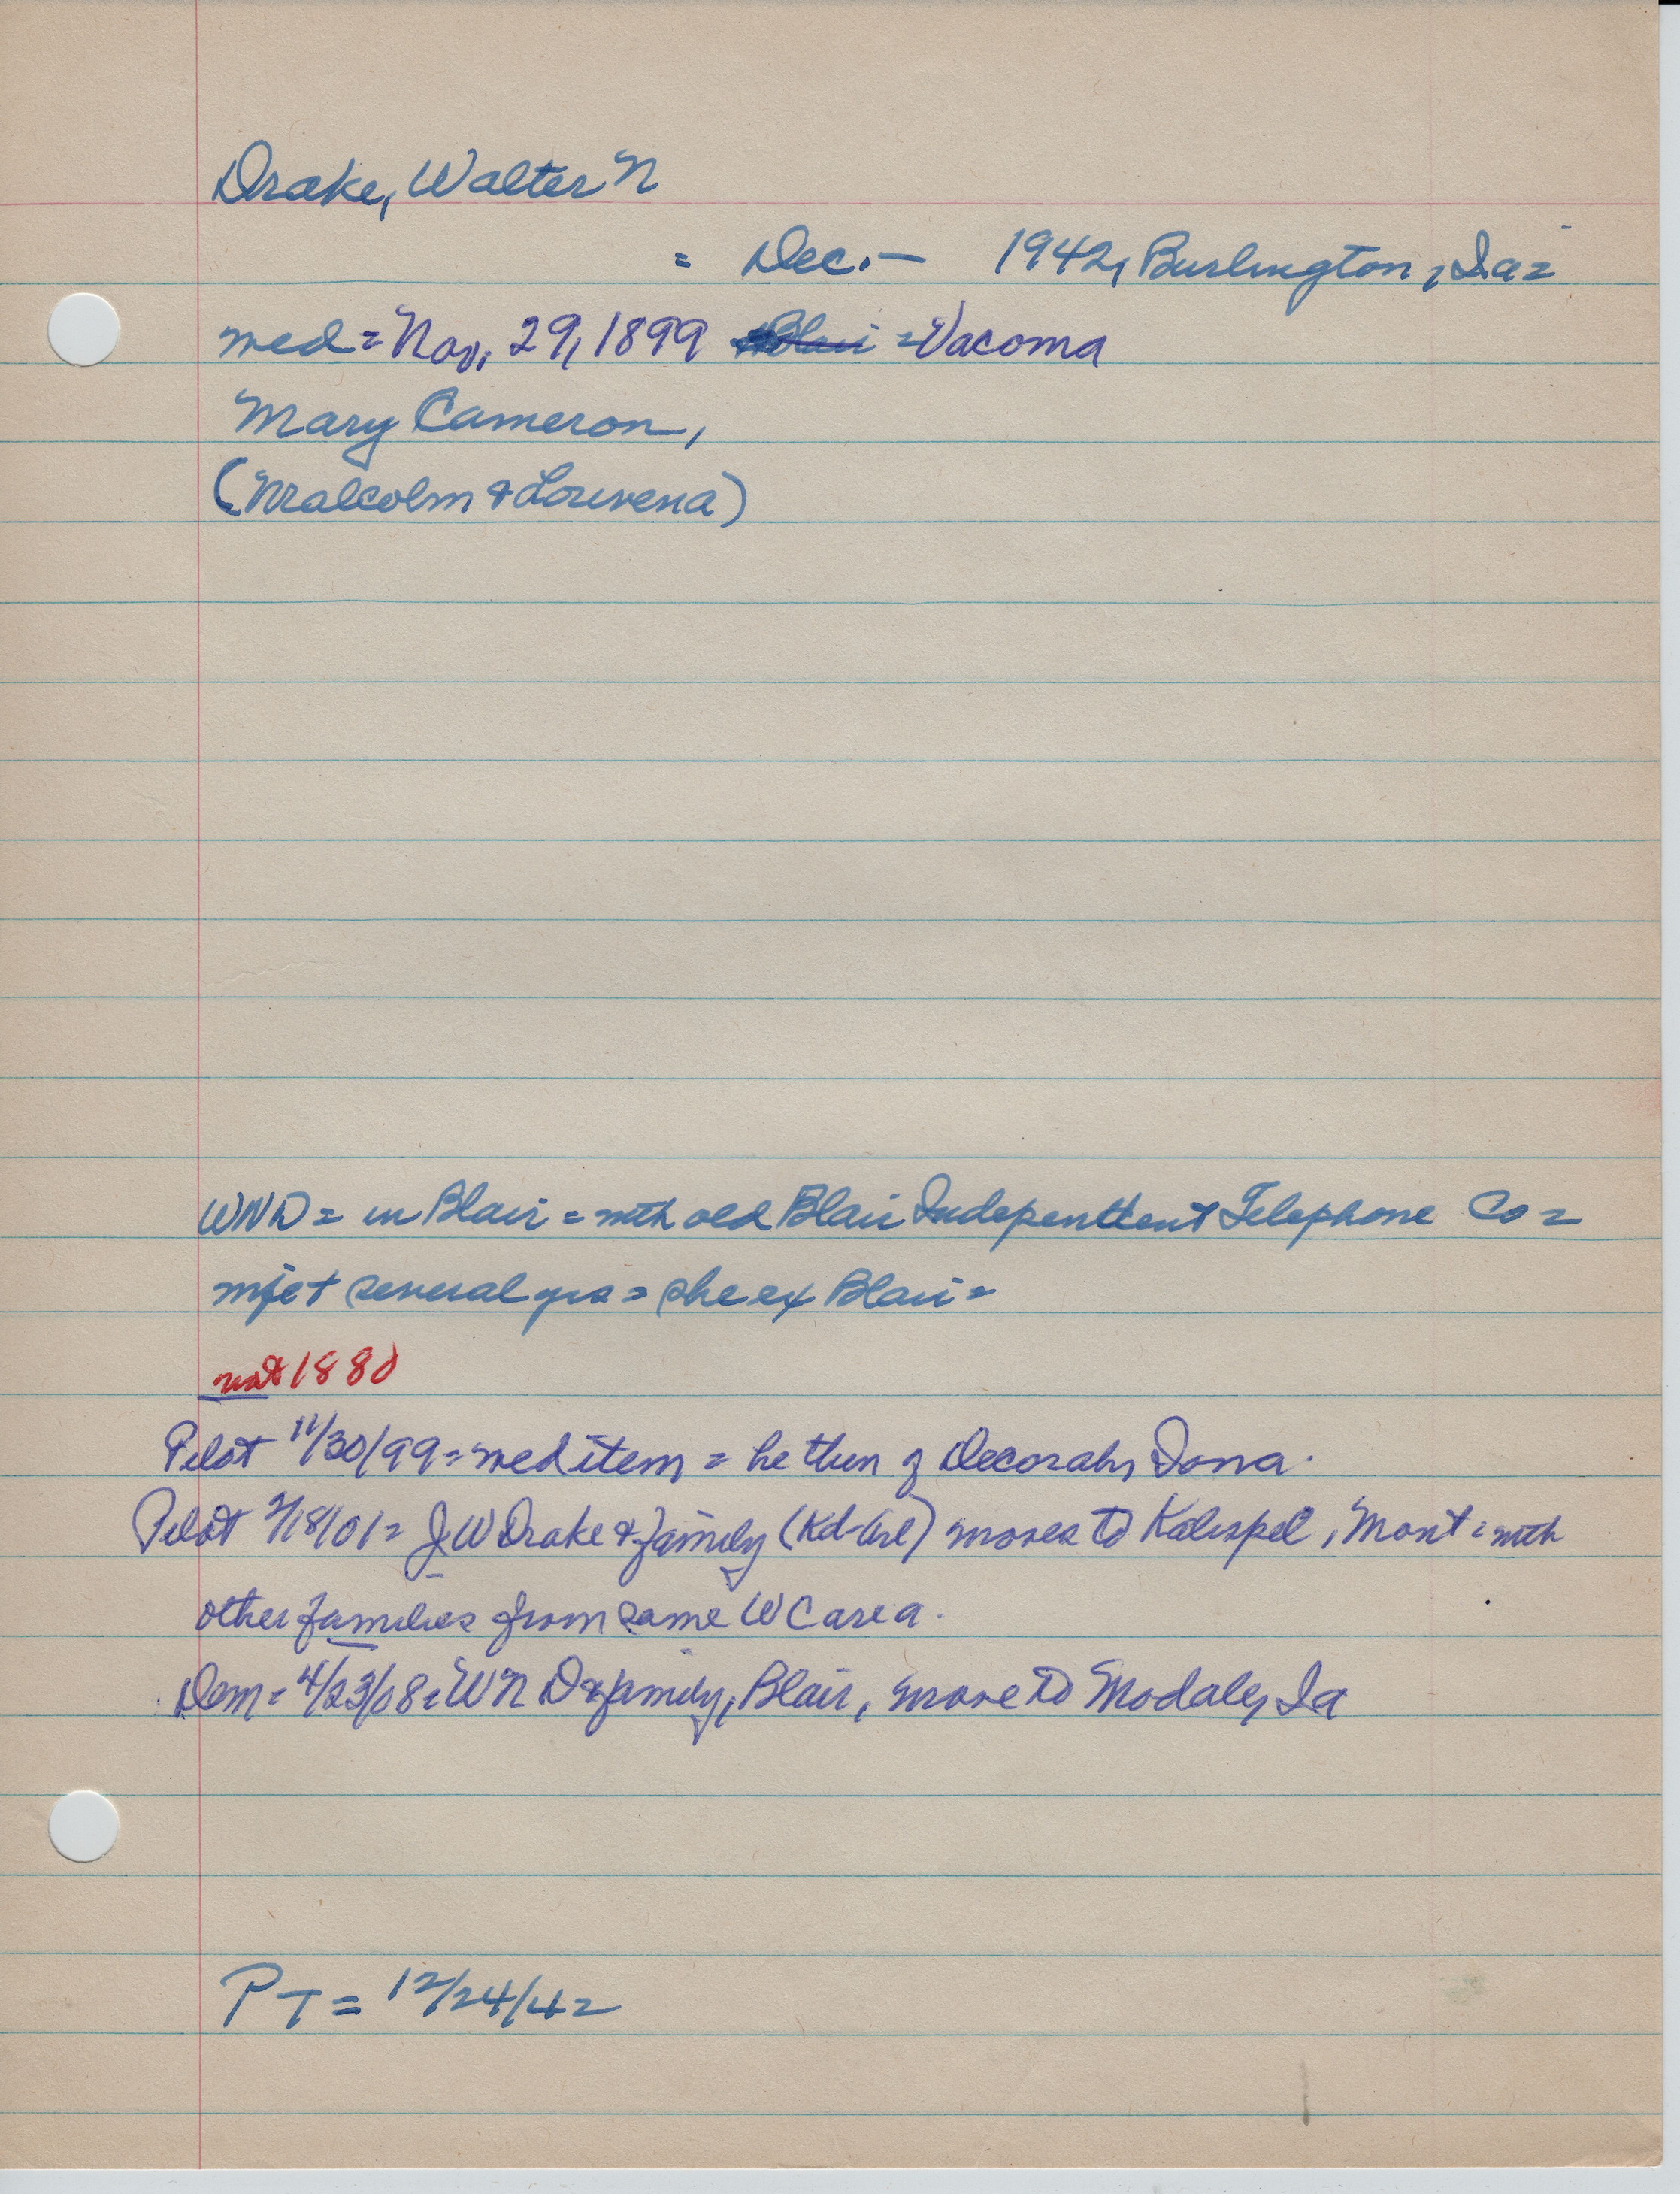 Drake, Walter N
= Dec. — 1942, Burlington, Ia =
wed = Nov. 29, 1899 Blair = Vacoma
Mary Cameron,
(Malcolm & Louvena)
WND = in Blair = with old Blair Independent Telephone Co =
several yrs = she ex Blair =
not 1880
Pilot 11/30/99 = wed item = he then of Decorah, Iowa.
Pilot /18/01 = J W Drake & family (Kd-Arl) moves to Kalispel, Mont = with
other families from same WC area.
Dem = 4/23/08 = W N D & family, Blair, move to Modale, Ia
PT = 12/24/42